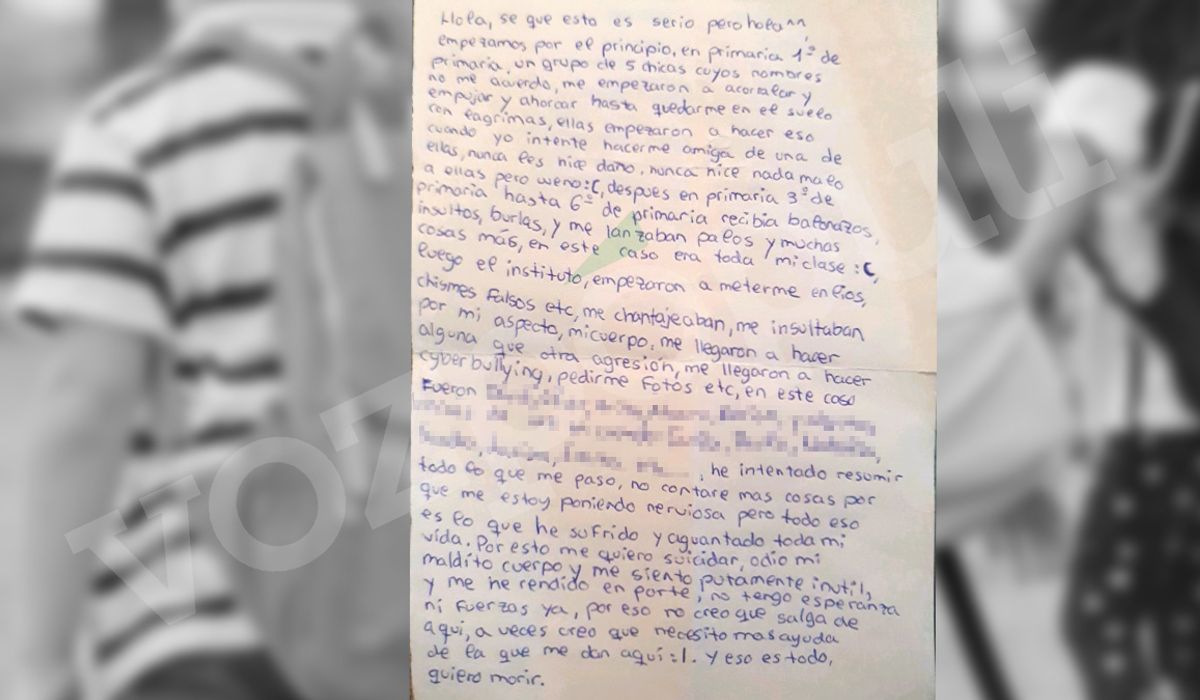 Hola, se que esto es serio pero hola^^,
empezamos por el principio, en primaria 1º de
primaria, un grupo de 5 chicas cuyos nombres
no me acuerdo, me empezaron a acorralar y
empujar y ahorcar hasta quedarme en el suelo
con lagrimas, ellas empezaron a hacer eso
cuando yo intente hacerme amiga de una de
ellas, nunca les hice daño, nunca hice nada malo
a ellas pero weno:C, despues en primaria 3º de
primaria hasta 6º de primaria recibia balonazos,
insultos, burlas, y me lanzaban palos y muchas
cosas más, en este caso era toda mi clase :C,
luego el instituto, empezaron a meterme en lios,
chismes falsos etc, me chantajeaban, me insultaban
por mi aspecto, mi cuerpo, me llegaron a hacer
alguna que otra agresión, me llegaron a hacer
cyberbullying, pedirme fotos etc, en este caso
fueron
, he intentado resumir
todo lo que me paso, no contare mas cosas por
que me estoy poniendo nerviosa pero todo eso
es lo que he sufrido y aguantado toda mi
vida. Por esto me quiero suicidar, odio mi
maldito cuerpo y me siento putamente inutil,
y me he rendido en parte, no tengo esperanza
ni fuerzas ya, por eso no creo que salga de
aqui, a veces creo que necesito mas ayuda
de la que me dan aquí :l. Y eso es todo,
quiero morir.